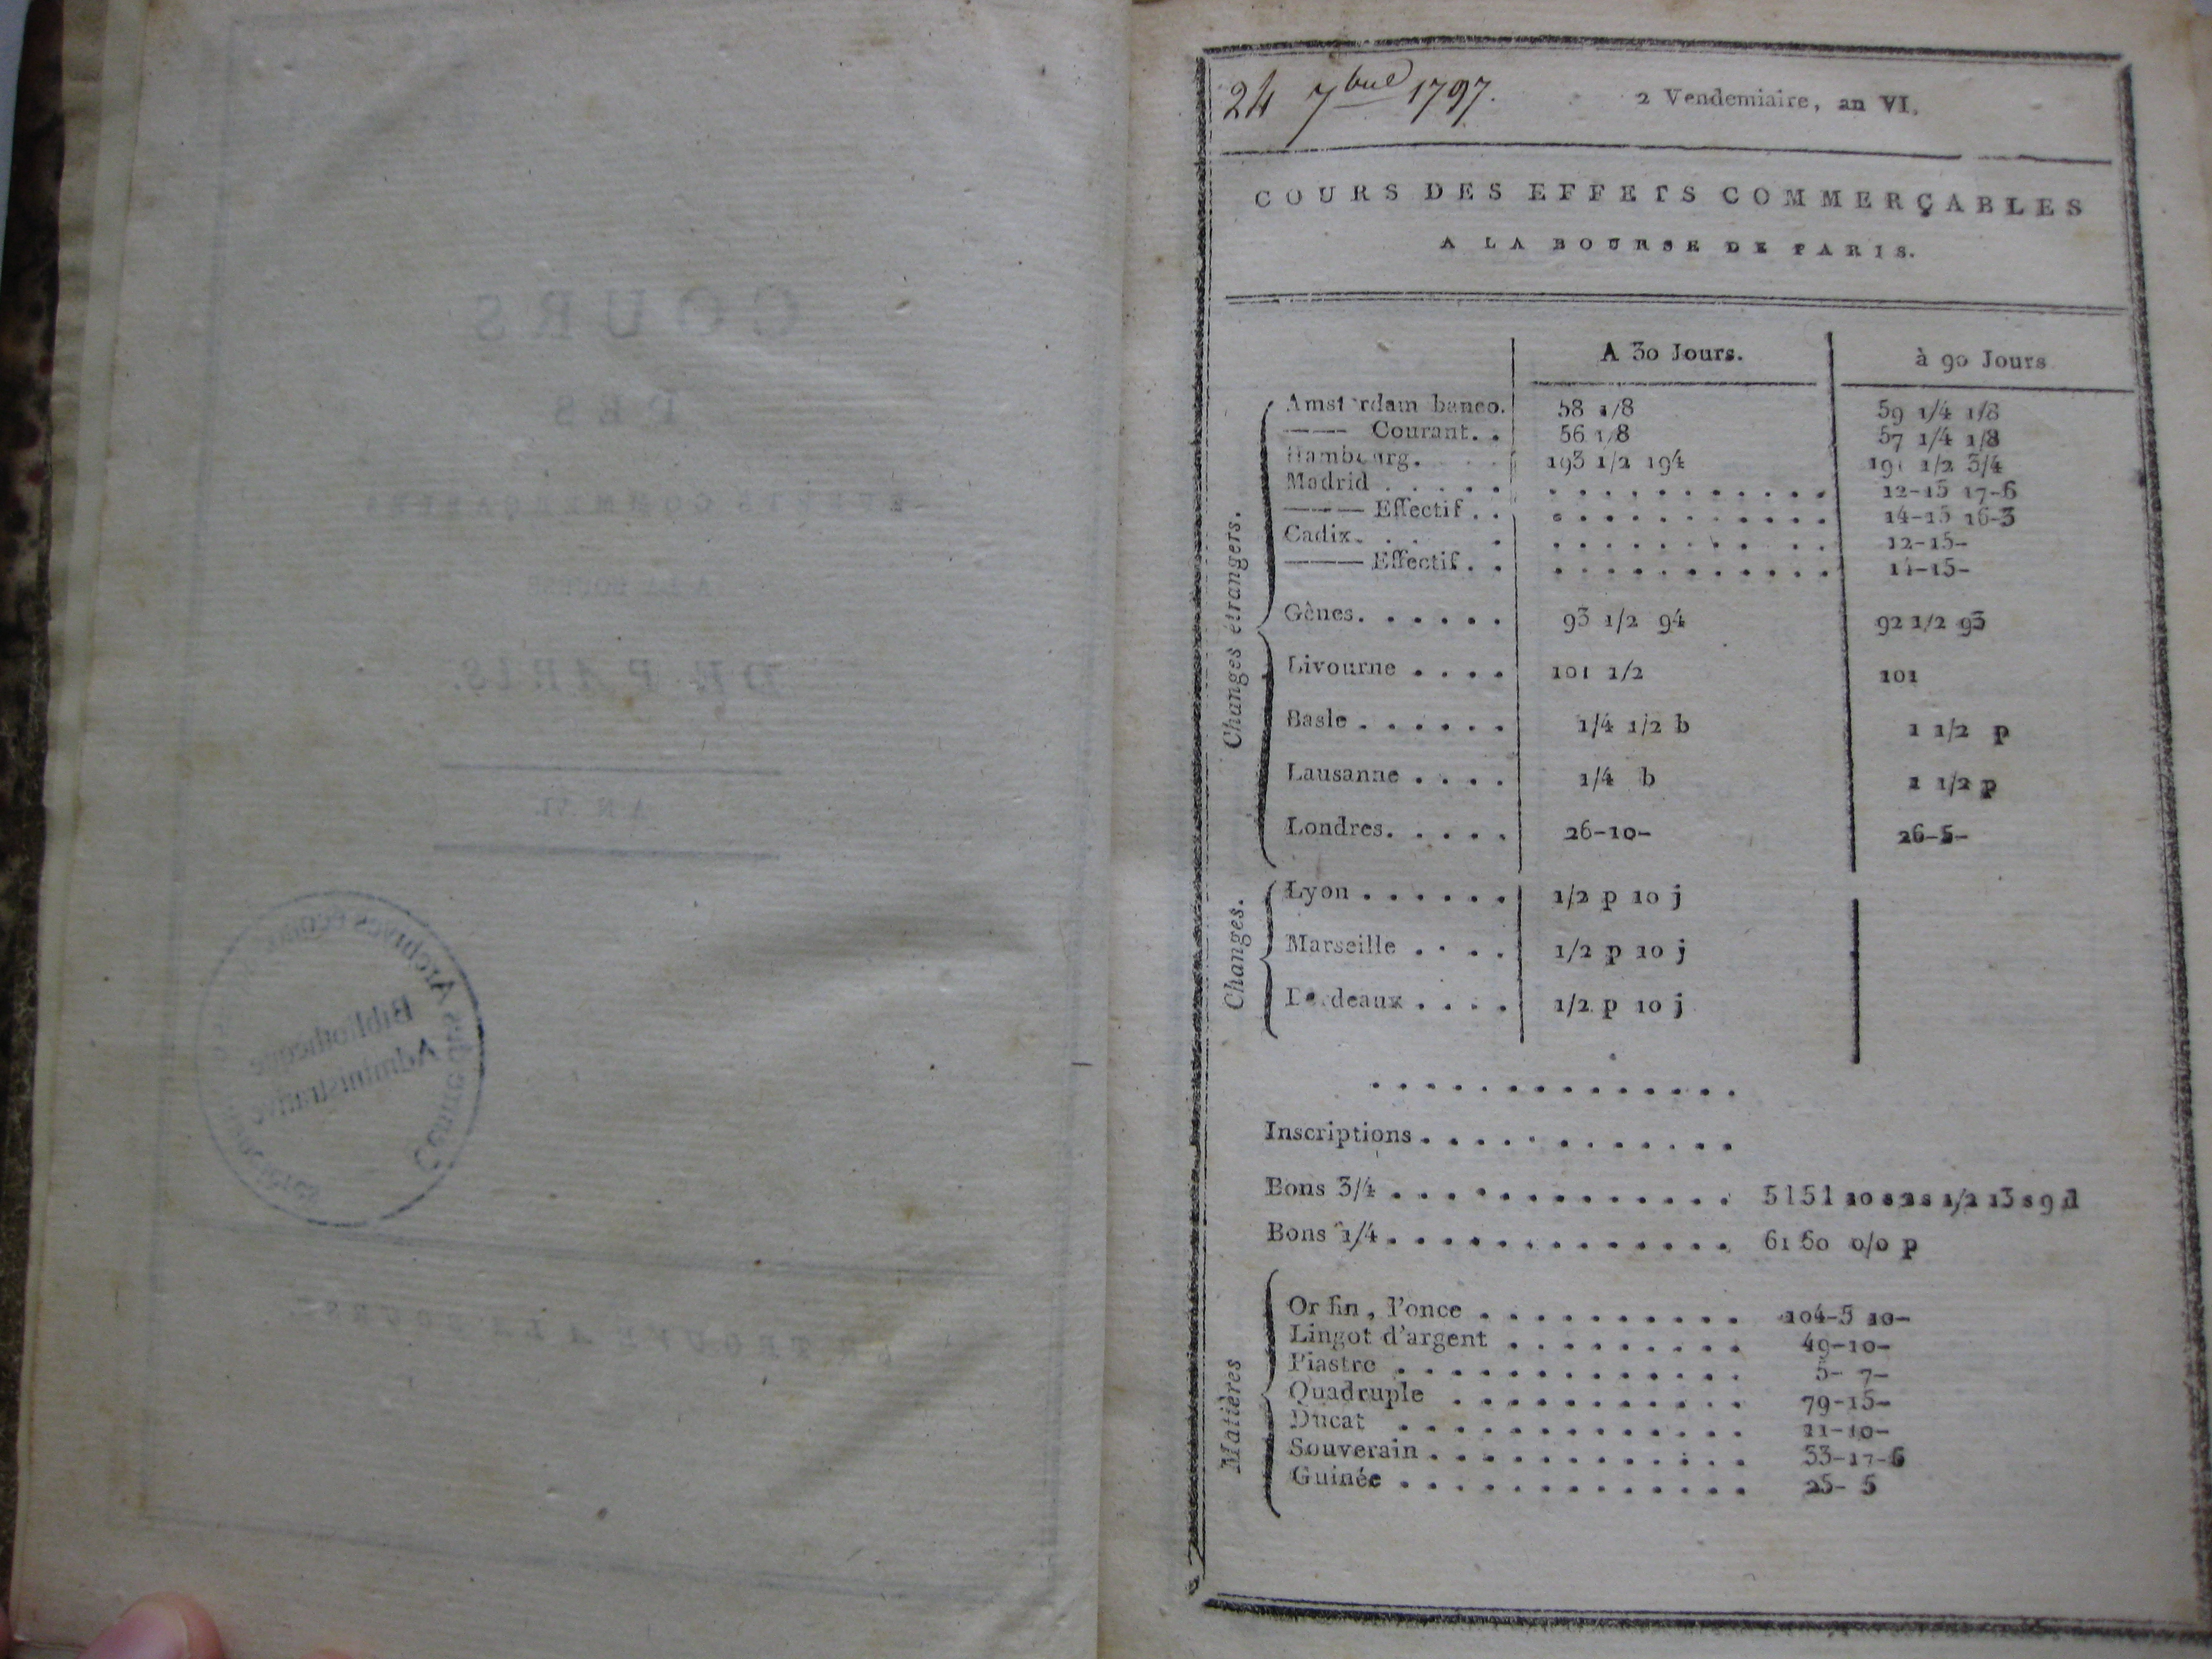 COURS
DES
EFFETS COMMERÇABLES
A LA BOURSE
DE PARIS.
AN VI.
Bibliothèque
Administrative
24 7bre 1797.
2 Vendemiaire, an VI.
COURS DES EFFETS COMMERÇABLES
A LA BOURSE DE PARIS.
A 30 Jours. à 90 Jours
Changes étrangers.
Amsterdam banco. 58 1/8 59 1/4 1/8
—— Courant. . 56 1/8 57 1/4 1/8
Hambourg. 193 1/2 194 191 1/2 3/4
Madrid . . . . . 12-15 17-6
——— Effectif . . 14-15 16-3
Cadix. . . . 12-15-
——— Effectif . . 14-15-
Gênes. . . . . . 93 1/2 94 92 1/2 93
Livourne . . . . 101 1/2 101
Basle . . . . . . 1/4 1/2 b 1 1/2 p
Lausanne . . . . 1/4 b 1 1/2 p
Londres. . . . . 26-10- 26-5-
Changes.
Lyon . . . . . . 1/2 p 10 j
Marseille . . . . 1/2 p 10 j
Bordeaux . . . . 1/2 p 10 j
Inscriptions . . . . . . . . . . . .
Bons 3/4 . . . . . . . . . . . . . 5151 10 s 2s 1/2 13 s 9 d
Bons 1/4 . . . . . . . . . . . . . 61 60 0/0 p
Matières
Or fin, l'once . . . . . . . . . . 104-5 10-
Lingot d'argent . . . . . . . . . 49-10-
Piastre . . . . . . . . . . . . . 5- 7-
Quadruple . . . . . . . . . . . 79-15-
Ducat . . . . . . . . . . . . . 11-10-
Souverain . . . . . . . . . . . . 33-17-6
Guinée . . . . . . . . . . . . . 25- 5